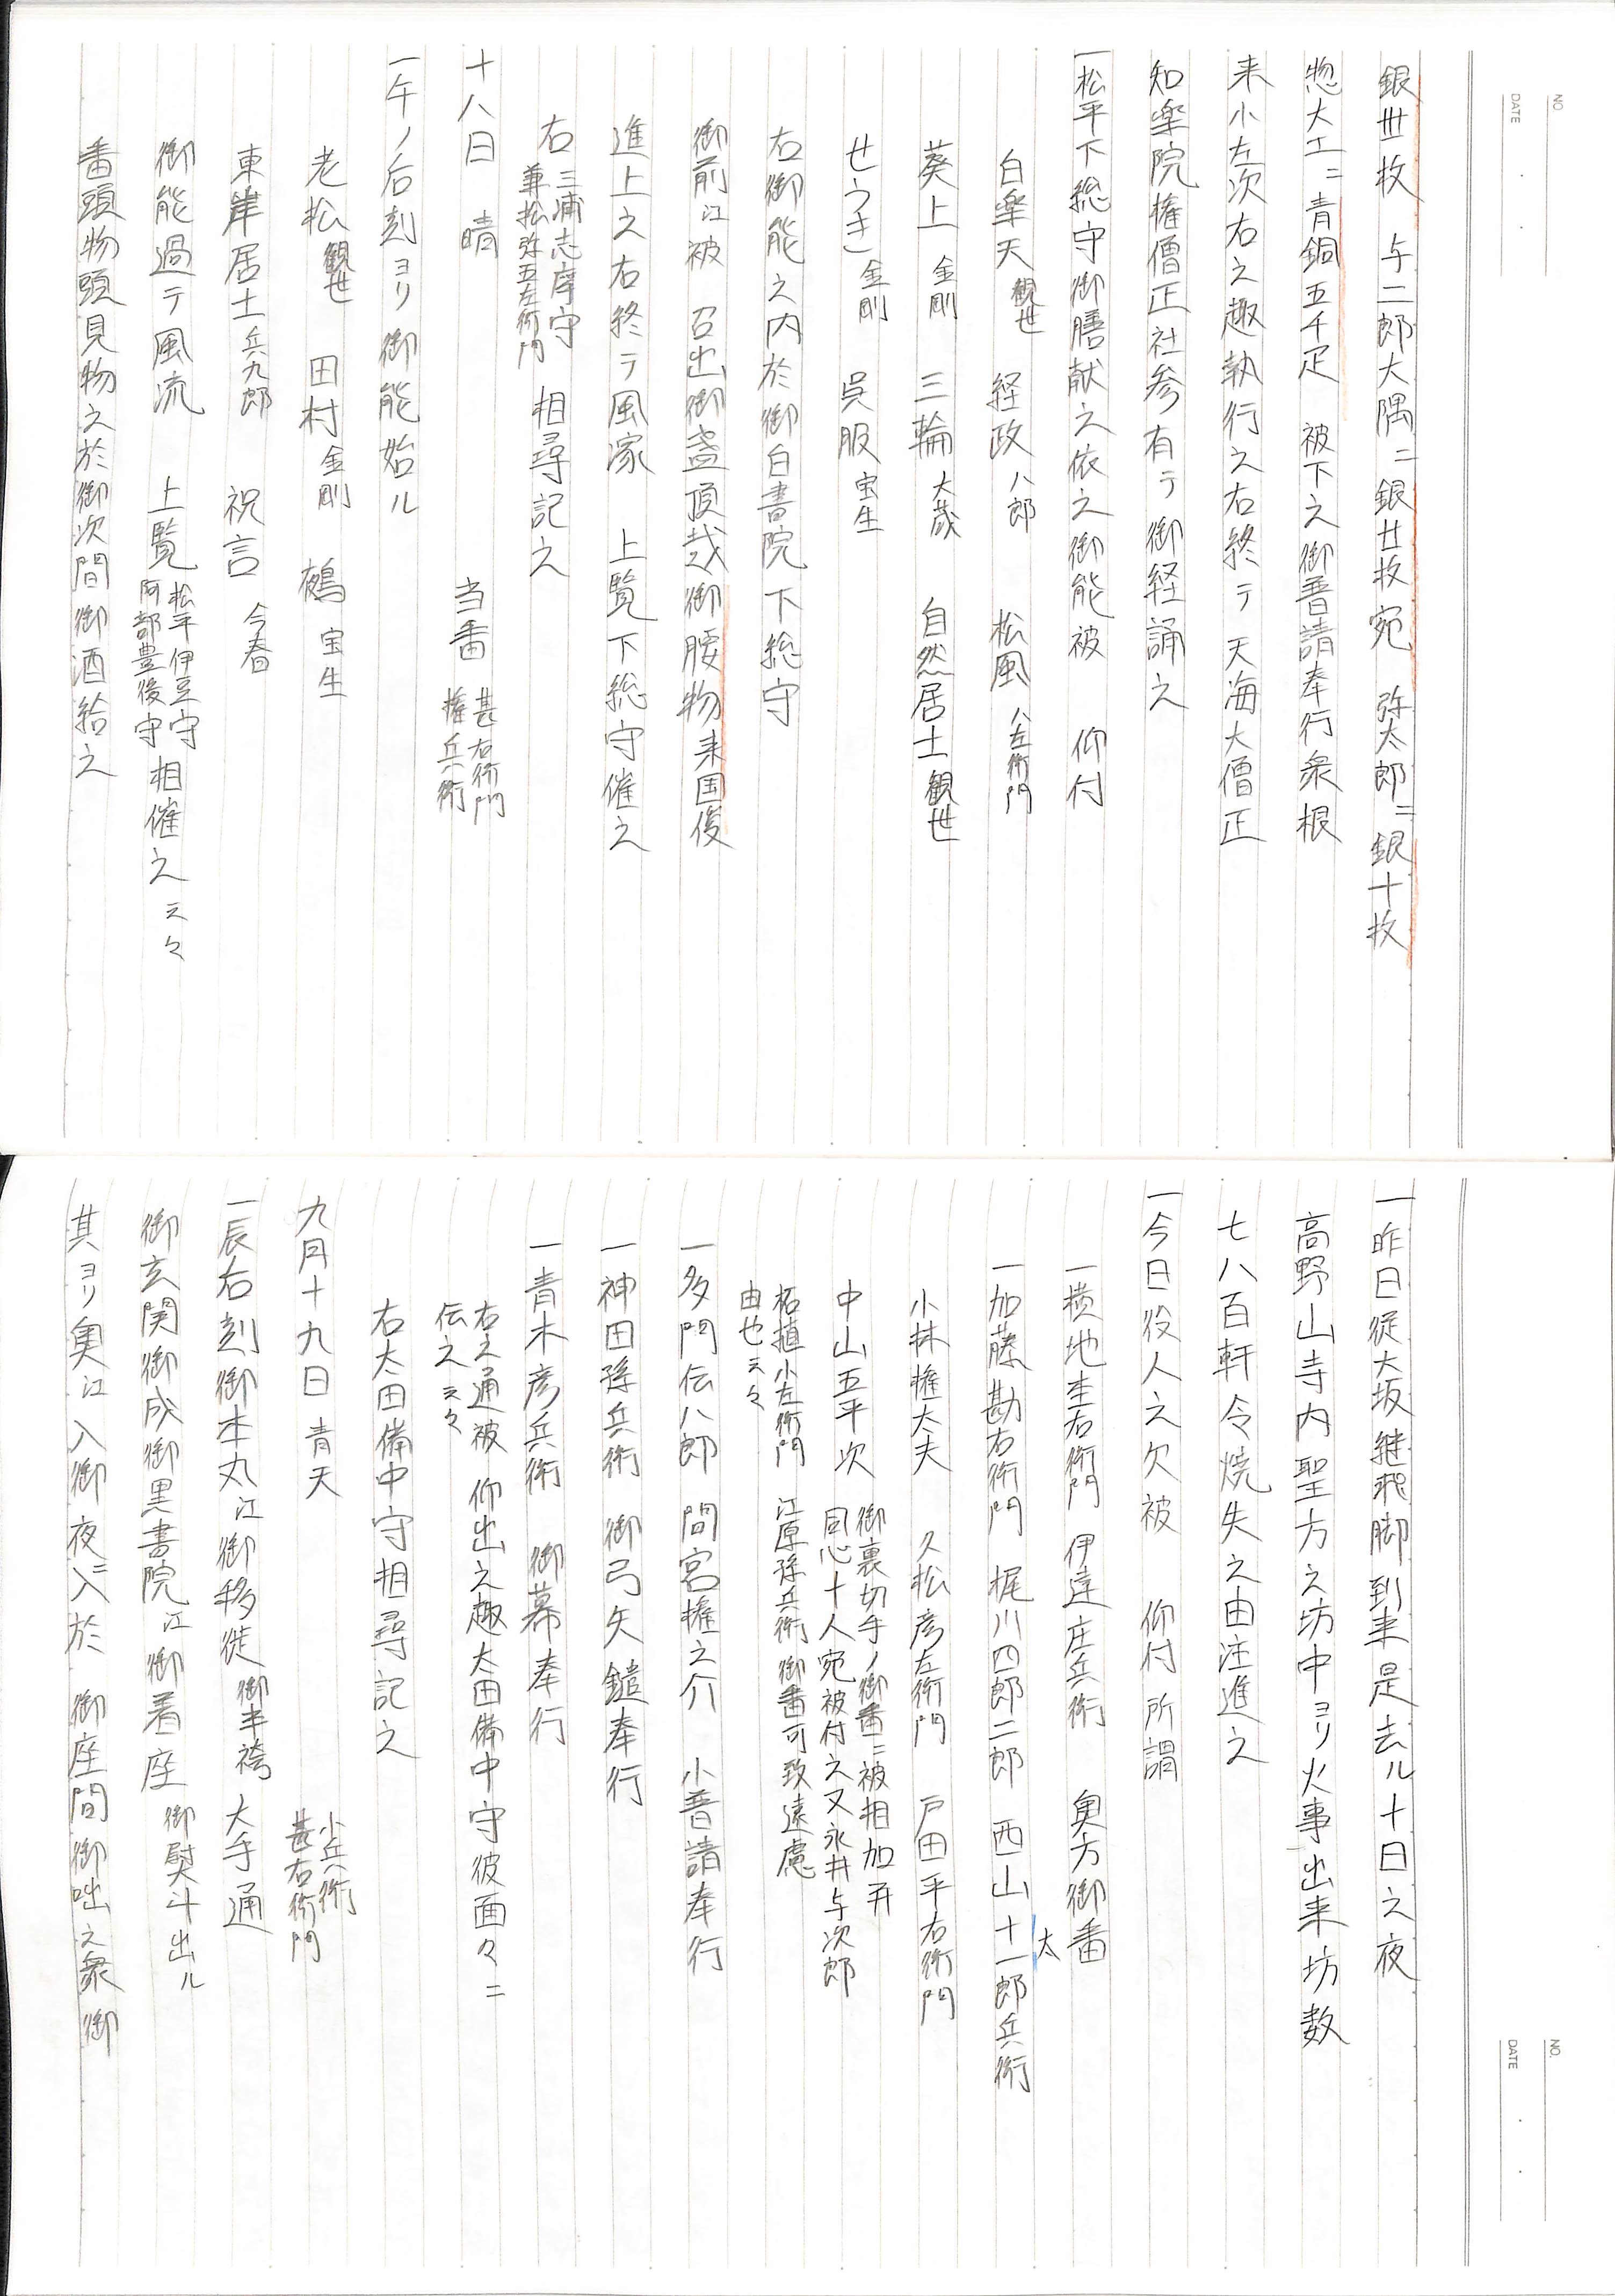 NO.
DATE
銀卅枚　与二郎大隅ニ銀廿枚宛　弥太郎ニ銀十枚
惣大工ニ青銅五千疋　被下之御普請奉行衆根
来小左次右之趣執行之右終テ天海大僧正
知楽院権僧正社参有テ御経誦之
一松平下総守御膳献之依之御能被　仰付
白楽天 観世　経政 八郎　松風 八左衛門
葵上 金剛　三輪 大蔵　自然居士 観世
せうき 金剛　呉服 宝生
右御能之内於御白書院下総守
御前江被　召出御盃頂戴御腰物来国俊
進上之右終テ風流　上覧下総守催之
右 三浦志摩守
兼松弥五左衛門 相尋記之
十八日　晴　当番 甚右衛門
権兵衛
一午ノ后刻ヨリ御能始ル
老松 観世　田村 金剛　鵺 宝生
東岸居士 兵九郎　祝言 今春
御能過テ風流　上覧 松平伊豆守
阿部豊後守 相催之 云々
番頭物頭見物之於御次間御酒給之
NO.
DATE
一昨日従大坂継飛脚到来是去ル十日之夜
高野山寺内聖方之坊中ヨリ火事出来坊数
七八百軒令焼失之由注進之
一今日役人之欠被　仰付　所謂
一横地杢右衛門　伊達庄兵衛　奥方御番
一加藤勘右衛門　梶川四郎二郎　西山十一郎兵衛
太
小林権太夫　久松彦左衛門　戸田平右衛門
中山五平次　御裏切手ノ御番ニ被相加并
同心十人宛被付之又永井与次郎
柘植小左衛門　江原孫兵衛　御番可致遠慮
由也云々
一多門伝八郎　間宮権之介　小普請奉行
一神田孫兵衛　御弓矢鑓奉行
一青木彦兵衛　御幕奉行
右之通被　仰出之趣太田備中守彼面々ニ
伝之云々
右太田備中守相尋記之
九月十九日　青天　小兵衛
甚右衛門
一辰右刻御本丸江御移徙 御半袴 大手通
御玄関御成御黒書院江御着座 御熨斗出ル
其ヨリ奥江入御夜ニ入於　御座間御咄之衆御